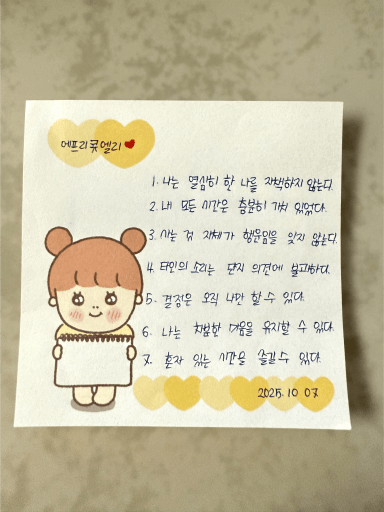 에프리큐엘리
1. 나는 열심히 한 나를 자책하지 않는다.
2. 내 모든 시간은 충분히 가치 있었다.
3. 사는 것 자체가 행운임을 잊지 않는다.
4. 타인의 소리는 단지 의견에 불과하다.
5. 결정은 오직 나만 할 수 있다.
6. 나는 차분한 마음을 유지할 수 있다.
7. 혼자 있는 시간을 즐길 수 있다.
2025. 10 07